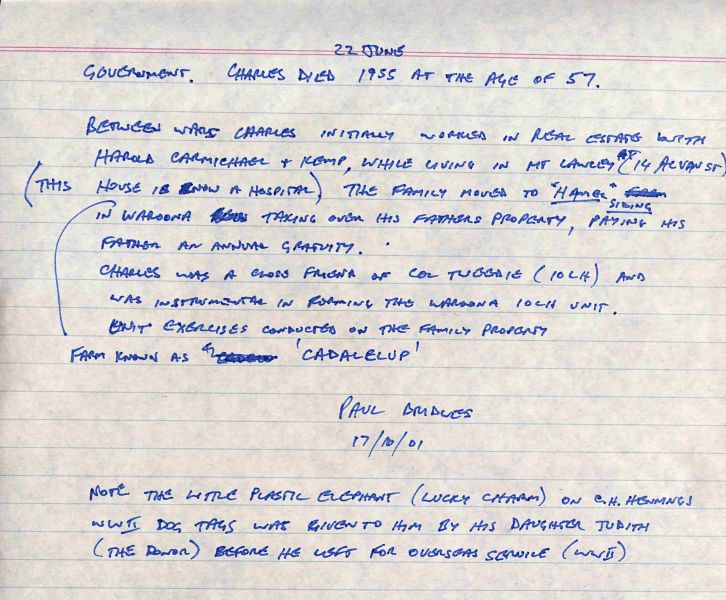 22 JUNE
GOVERNMENT. CHARLES DIED 1955 AT THE AGE OF 57.
BETWEEN WARS CHARLES INITIALLY WORKED IN REAL ESTATE WITH
HAROLD CARMICHAEL + KEMP, WHILE LIVING IN MT LAWLEY (AT 14 ALVAN ST)
(THIS HOUSE IS NOW A HOSPITAL) THE FAMILY MOVED TO "HAMEL" SIDING
IN WAROONA TAKING OVER HIS FATHERS PROPERTY, PAYING HIS
FATHER AN ANNUAL GRATUITY.
CHARLES WAS A CLOSE FRIEND OF COL TWEEDIE (10LH) AND
WAS INSTRUMENTAL IN FORMING THE WAROONA 10LH UNIT.
UNIT EXERCISES CONDUCTED ON THE FAMILY PROPERTY
FARM KNOWN AS 'CADALELUP'
PAUL BRIDGES
17/10/01
NOTE THE LITTLE PLASTIC ELEPHANT (LUCKY CHARM) ON C.H. HENNINGS
WWII DOG TAGS WAS GIVEN TO HIM BY HIS DAUGHTER JUDITH
(THE DONOR) BEFORE HE LEFT FOR OVERSEAS SERVICE (WWII)